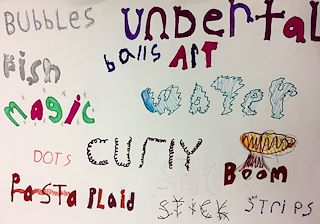 BUBBLES unDentaL
balls ART
Fish
magic WATER
DOTS CURLY
BOOM
Pasta PLAID STICK STRIPS